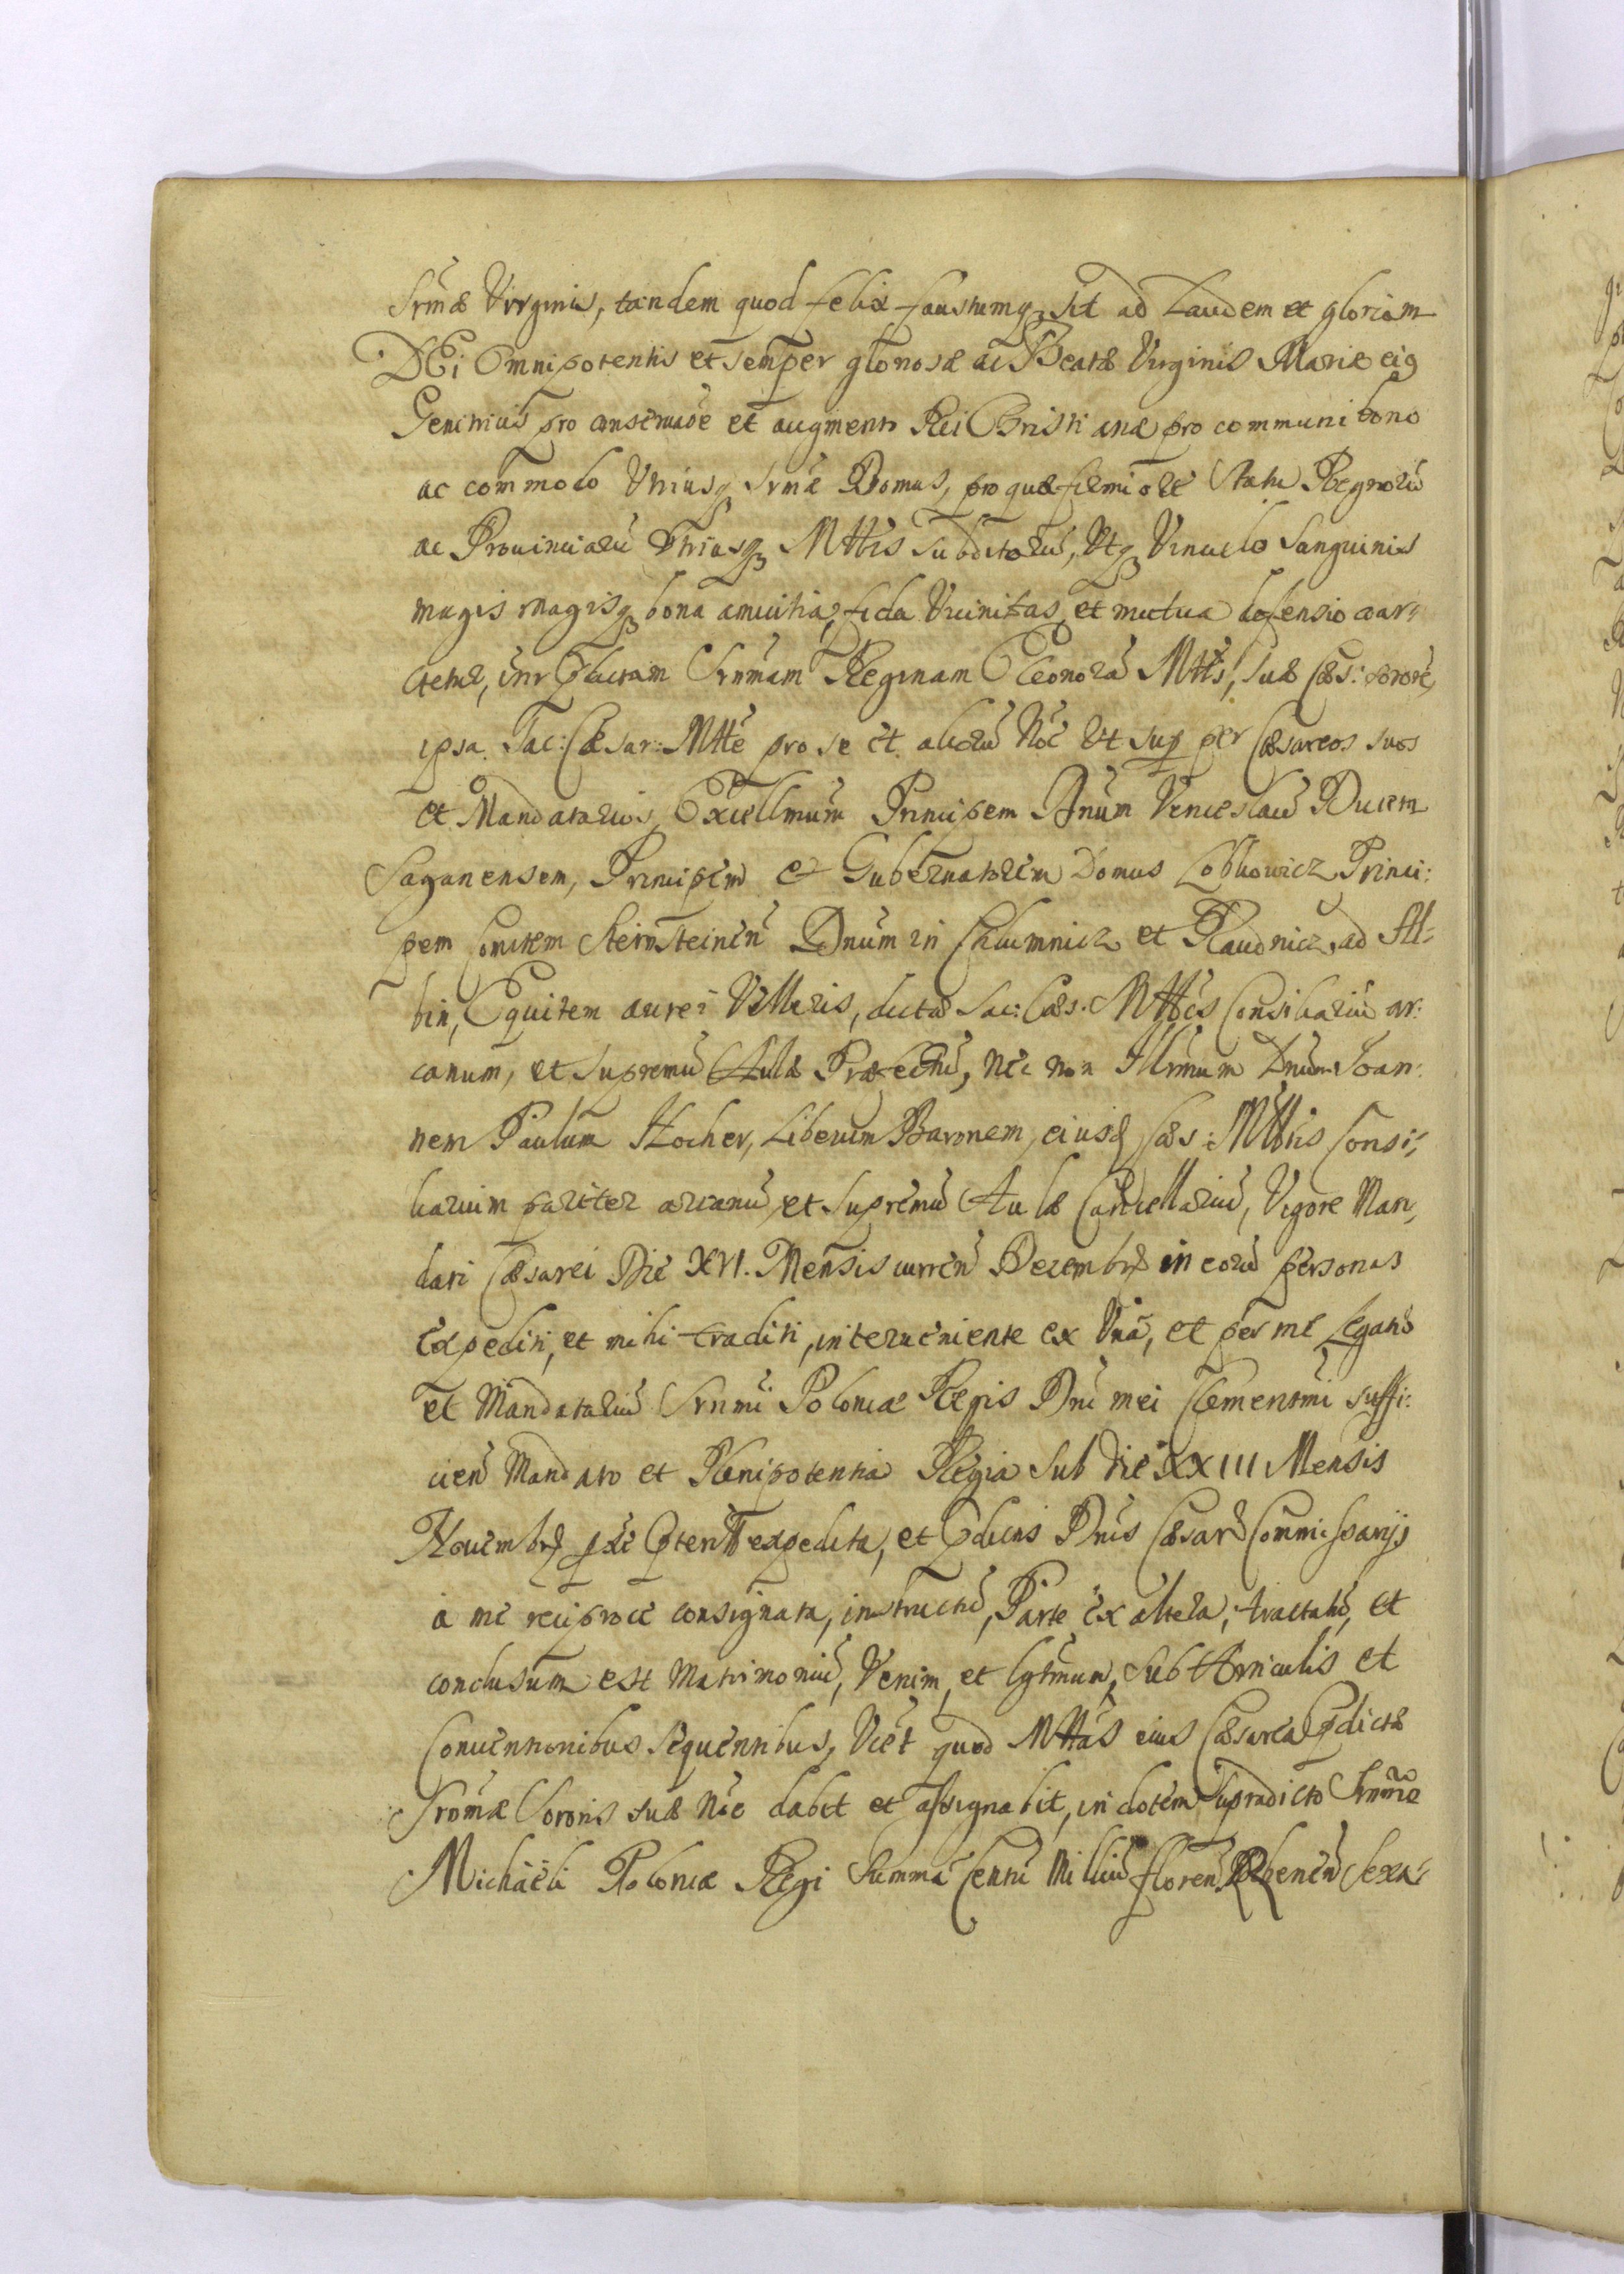 Srmæ Virginis, tandem quod felix faustumq; sit ad Laudem et gloriam
DEi Omnipotentis et semper gloriosæ ac Beatæ Virginis Mariæ eig
Genitricis pro conseruaoē et augmento Rei Christianæ pro communi bono
ac commodo Vtriusq; Srmæ Domus, pro quæ firmiore Statu Regnorū
ac Prouinciarū Vtriusq; Mttis Subditorū, Vtq; Vinculo Sanguinis
magis magisq; bona amicitia, fida Vicinitas, et mutua defensio coar=
ctetur, intr Pfactam Srnmam Reginam Eleonorā Mttis, Suæ Cæs: sororē,
ipsa Sac: Cæsar: Mtte pro se et aliorū Noē Vt sup per Cæsareos suos
et Mandatarios, Excellmum Principem Dnum Venceslaū Ducem
Saganensem, Principem et Gubernatorem Domus Lobkowicz, Princi:
pem Comitem Sternsteinēn Dnum in Chlumnicz et Raudnicz, ad Al=
bin, Equitem aurei Velleris, dictæ Sac: Cæs: Mttis Consiliariū ar:
canum, et Supremū Aulæ Præfectū, nec non Illrmum Dnum Joan:
nem Paulum Hocher, Liberum Baronem, eiusd Cæs: Mttis Consi=
liarium pariter arcanū et Supremū Aulæ Cancellariū, Vigore Man,
dati Cæsarei Die XVI. Mensis currēn Decembr in eorū personas
expediti, et mihi traditi, interueniente ex Vnā, et per me Legatū
et Mandatariū Srnmi Poloniæ Regis Dni mei Clementmi suffi:
cien Mandato et Plenipotentia Regia Sub die XXIII Mensis
Nouembr expedita, et Pdictis Dnis Cæsar Commissarijs
à me reciproce consignata, instructū, Parte ex altera, tractatū, et
conclusum est Matrimoniū, Verum, et lgtmum, Sub Articulis et
Conuentionibus sequentibus, Vcet quod Mttas eius Cæsarea Pdictæ
Srnmæ Sororis suæ Noē dabit et assignabit, in dotem supradicto Srnmo
Michaëli Poloniæ Regi Summā Centū Milliū floren Rhenēn Sexa=